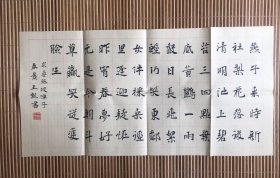 燕子來時新
社梨花落後
清明池上碧
苔三四點葉
底黃鸝一兩
聲日長飛絮
輕巧笑東鄰
女伴採桑徑
里逢迎疑怪
昨宵春夢好
元是今朝鬥
草贏笑從雙
臉生
晏殊破陣子
王 書